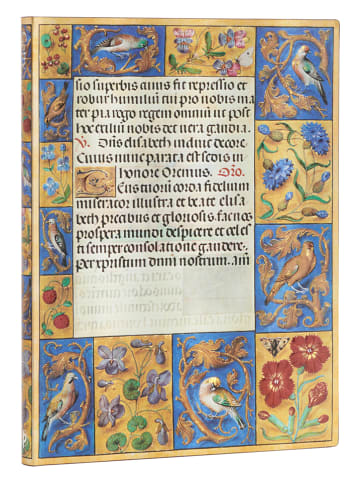 sio superbis cuius fit repressio et
robur humiliū tu pro nobis ma
ter pia rogo regem omniū ut post
hoc exiliū nobis det vera gaudia.
V. Dn̄s elisabeth induit decore
Cuius nunc parata est sedis in
honore Oremus. Oro.
Deus tuorū corda fidelium
miserator illustra et beate elisa
beth precibus et gloriosis fac nos
prospera mundi despicere et celes
ti semper consolatione gaudere.
per xpristum dn̄m nostrum. am̄